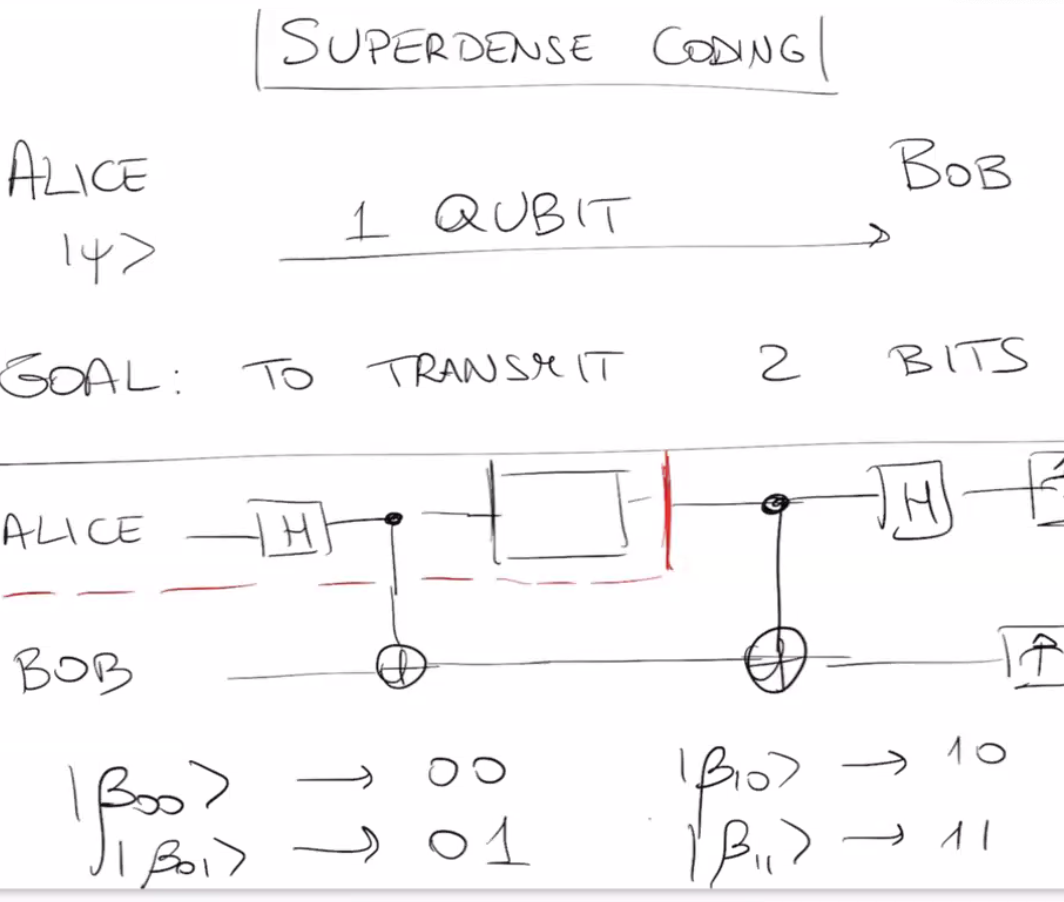 SUPERDENSE CODING
ALICE BOB
|ψ> 1 QUBIT
GOAL: TO TRANSMIT 2 BITS
ALICE H H
BOB
|β00> → 00 |β10> → 10
|β01> → 01 |β11> → 11